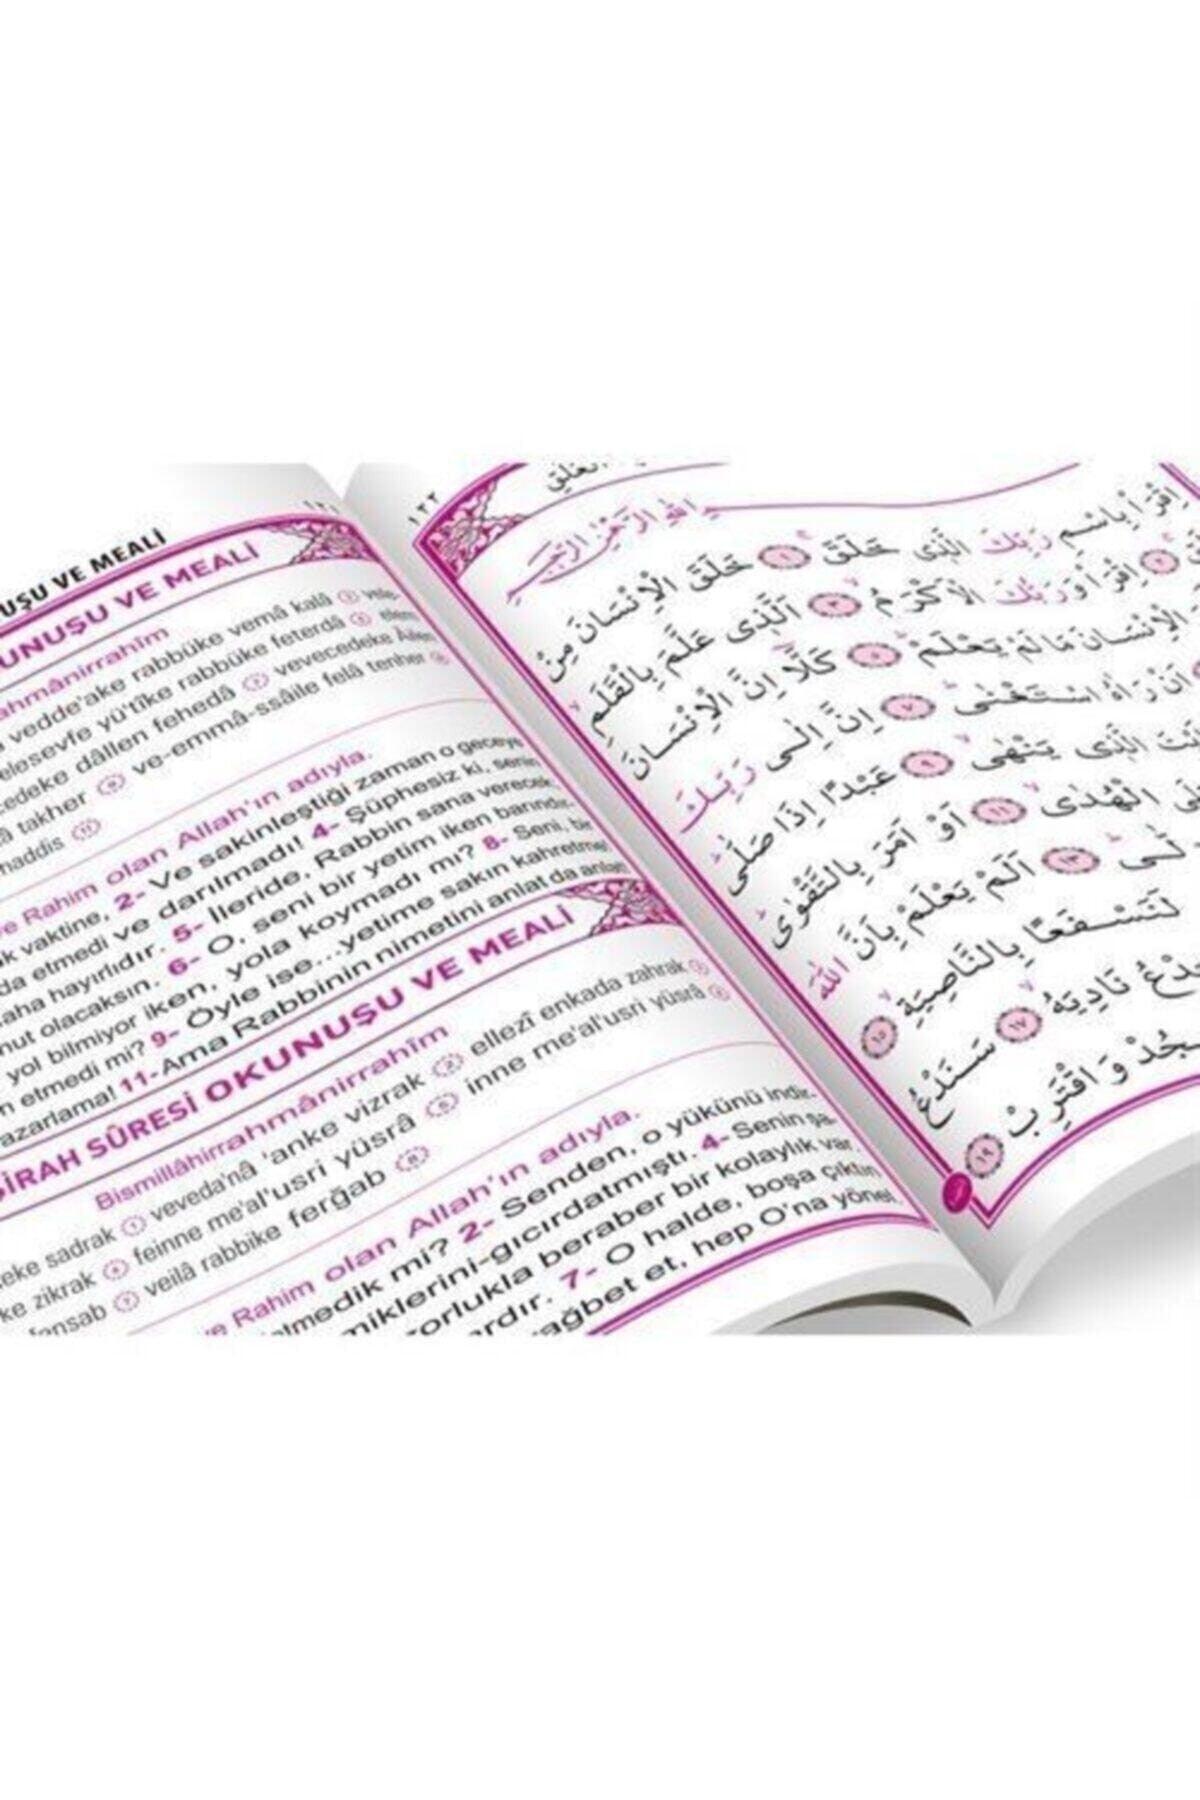 UŞU VE MEALİ
١٢١
UNUŞU VE MEALİ
ahmânirrahîm
vedde'ake rabbüke vemâ kalâ
elesevfe yü'tîke rabbüke feterdâ
cedeke dâllen fehedâ vevecedeke
takher ve-emmâ-ssâile felâ tenher
haddis
ve Rahim olan Allah'ın adıyla.
k vaktine, 2- Ve sakinleştiği zaman o geceye
da etmedi ve darılmadı! 4- Şüphesiz ki, senin
aha hayırlıdır. 5- İleride, Rabbin sana verecek
nut olacaksın. 6- O, seni bir yetim iken barındır
yol bilmiyor iken, yola koymadı mı? 8- Seni, bir
n etmedi mi? 9- Öyle ise...yetime sakın kahretme!
azarlama! 11- Ama Rabbinin nimetini anlat da anlat
ŞİRAH SÛRESİ OKUNUŞU VE MEALİ
Bismillâhirrahmânirrahîm
eke sadrak 1 veveda'nâ 'anke vizrak 2 ellezî enkada zahrak 3
ke zikrak feinne me'al'usri yüsrâ 5 inne me'al'usri yüsrâ 6
fensab 7 veilâ rabbike ferğab 8
ve Rahim olan Allah'ın adıyla.
tmedik mi? 2- Senden, o yükünü indir
miklerini-gıcırdatmıştı. 4- Senin şa-
zorlukla beraber bir kolaylık var.
ardır. 7- O halde, boşa çıktın
ağbet et, hep O'na yönel.
١٢٢
العلق
اللّٰهِ الرَّحْمٰنِ الرَّحِيمِ
اِقْرَأْ بِاسْمِ رَبِّكَ الَّذِى خَلَقَ ١ خَلَقَ الْاِنْسَانَ مِنْ
٢ اِقْرَأْ وَرَبُّكَ الْاَكْرَمُ ٣ اَلَّذِى عَلَّمَ بِالْقَلَمِ
الْاِنْسَانَ مَا لَمْ يَعْلَمْ ٥ كَلَّا اِنَّ الْاِنْسَانَ
اَنْ رَاٰهُ اسْتَغْنٰى ٧ اِنَّ اِلٰى رَبِّكَ
الَّذِى يَنْهٰى ٩ عَبْدًا اِذَا صَلّٰى
الْهُدٰى ١١ اَوْ اَمَرَ بِالتَّقْوٰى
لّٰى ١٣ اَلَمْ يَعْلَمْ بِاَنَّ اللّٰهَ
لَنَسْفَعًا بِالنَّاصِيَةِ ١٥
دْعُ نَادِيَهُ ١٧ سَنَدْعُ
سْجُدْ وَاقْتَرِبْ ١٩